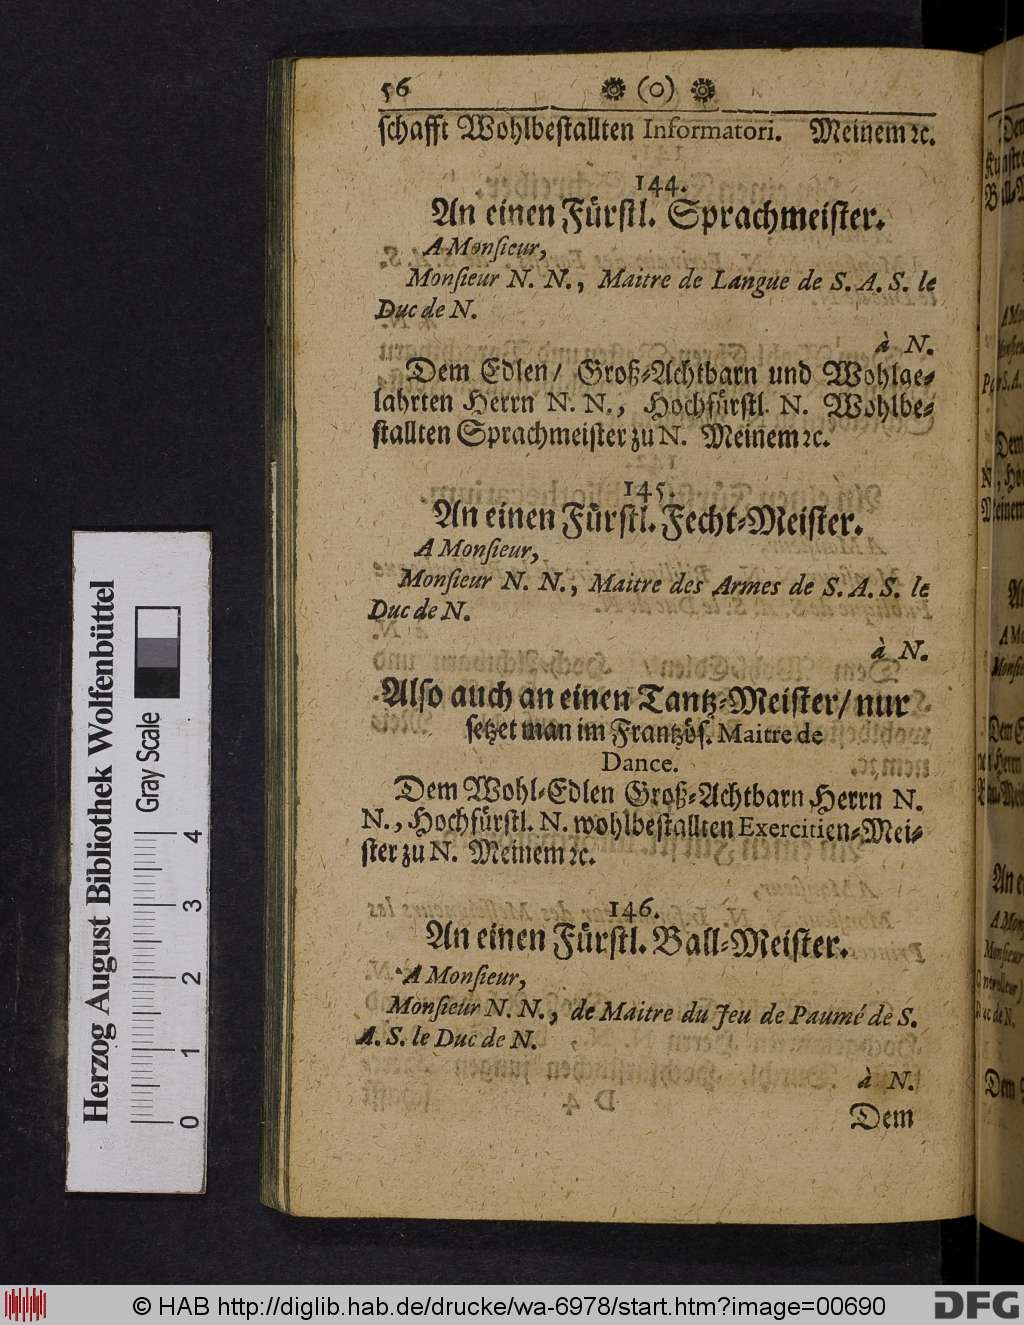 56 (o)
schafft Wohlbestallten Informatori. Meinem ꝛc.
144.
An einen Fürstl. Sprachmeister.
A Monsieur,
Monsieur N. N., Maitre de Langue de S. A. S. le
Duc de N.
à N.
Dem Edlen/ Groß-Achtbarn und Wohlge-
lahrten Herrn N. N., Hochfürstl. N. Wohlbe-
stallten Sprachmeister zu N. Meinem ꝛc.
145.
An einen Fürstl. Fecht-Meister.
A Monsieur,
Monsieur N. N., Maitre des Armes de S. A. S. le
Duc de N.
à N.
Also auch an einen Tantz-Meister/ nur
setzet man im Frantzös. Maitre de
Dance.
Dem Wohl-Edlen Groß-Achtbarn Herrn N.
N., Hochfürstl. N. wohlbestallten Exercitien-Mei-
ster zu N. Meinem ꝛc.
146.
An einen Fürstl. Ball-Meister.
A Monsieur,
Monsieur N. N., de Maitre du Jeu de Paumé de S.
A. S. le Duc de N.
à N.
Dem
Herzog August Bibliothek Wolfenbüttel
Gray Scale
0 1 2 3 4
© HAB http://diglib.hab.de/drucke/wa-6978/start.htm?image=00690
DFG